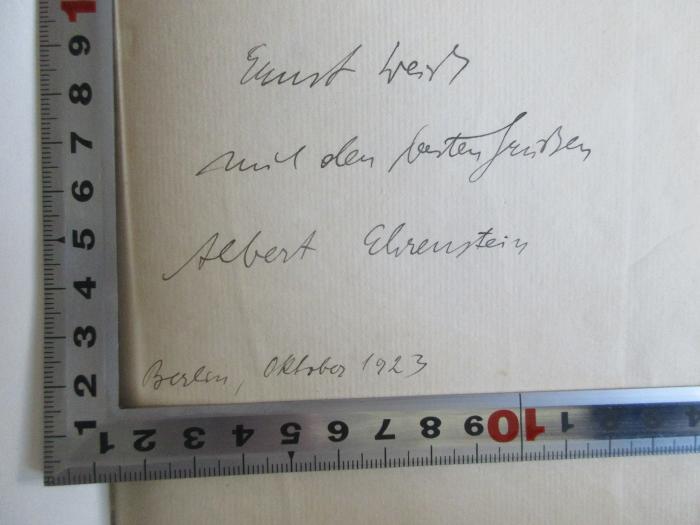 Ernst Weiß
mit den besten Grüßen
Albert Ehrenstein
Berlin, Oktober 1923
1
9
8
7
6
5
4
3
2
1
1 2 3 4 5 6 7 8 9 10 1